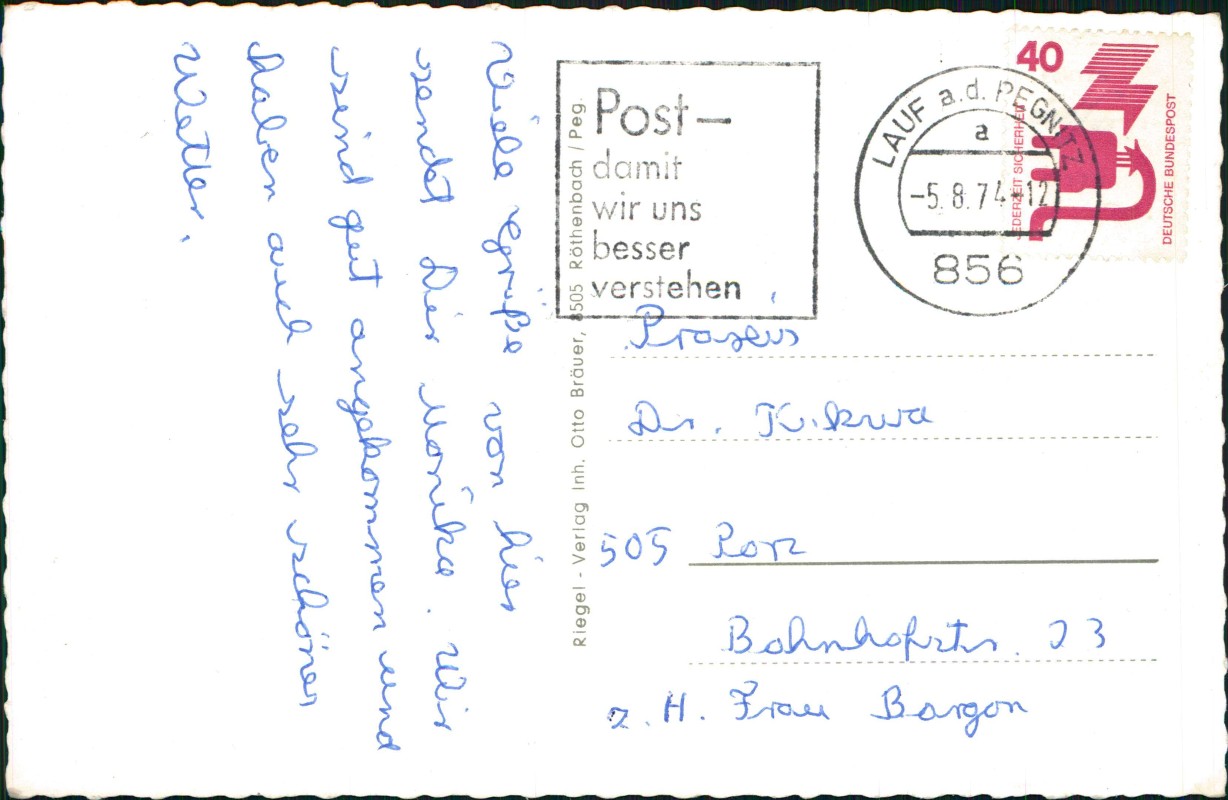 Viele Grüße von hier
sendet Dir Monika. Wir
sind gut angekommen und
haben auch sehr schönes
Wetter.
Riegel - Verlag Inh. Otto Bräuer, 8505 Röthenbach / Peg.
Post-
damit
wir uns
besser
verstehen
LAUF a.d. PEGNITZ
a
-5.8.74-12
856
40
JEDERZEIT SICHERHEIT
DEUTSCHE BUNDESPOST
Praxis
Dr.
505 Porz
Bahnhofstr. 23
z. H. Frau Bargon